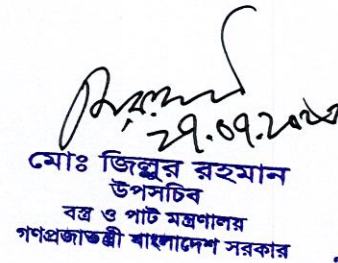 ২৭.০৭.২০২৩
মোঃ জিল্লুর রহমান
উপসচিব
বস্ত্র ও পাট মন্ত্রণালয়
গণপ্রজাতন্ত্রী বাংলাদেশ সরকার